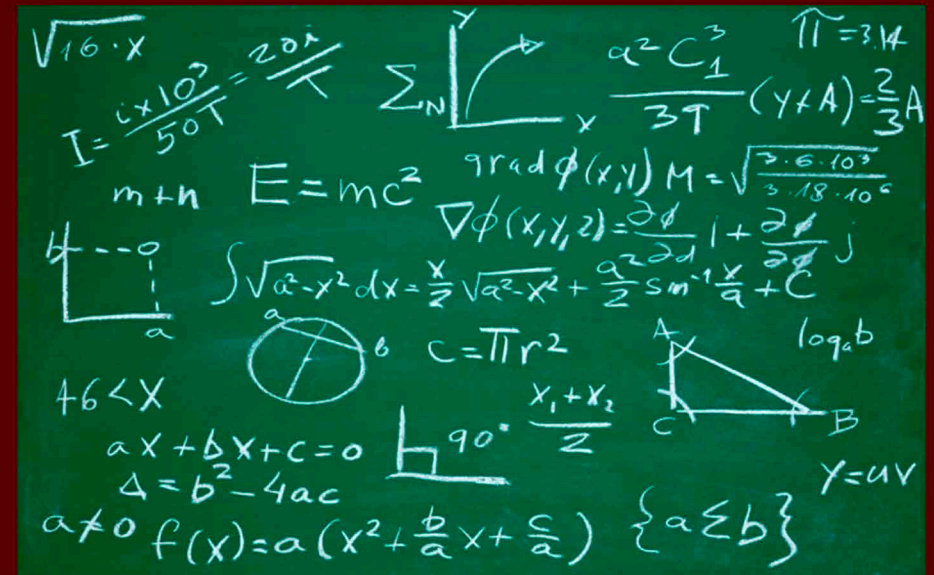 √16·x
I = i×10³/50T = 20i/T
Σ_N
Y
X
a²C₁³/3T
π = 3.14
(y+A) = 2/3 A
m+n
E = mc²
grad ϕ(x,y)
M = √(3·6·10³/3·18·10⁶)
∇ϕ(x,y,z) = ∂ϕ/∂d i + ∂ϕ/∂ϕ j
b
a
∫√a²-x² dx = x/2 √a²-x² + a²/2 sin⁻¹ x/a + C
a
b
c = πr²
A
C
B
logₐb
46 < X
90°
x₁+x₂/2
ax+bx+c=0
Δ = b²-4ac
Y=uv
a≠0
f(x) = a(x² + b/a x + c/a)
{a≤b}